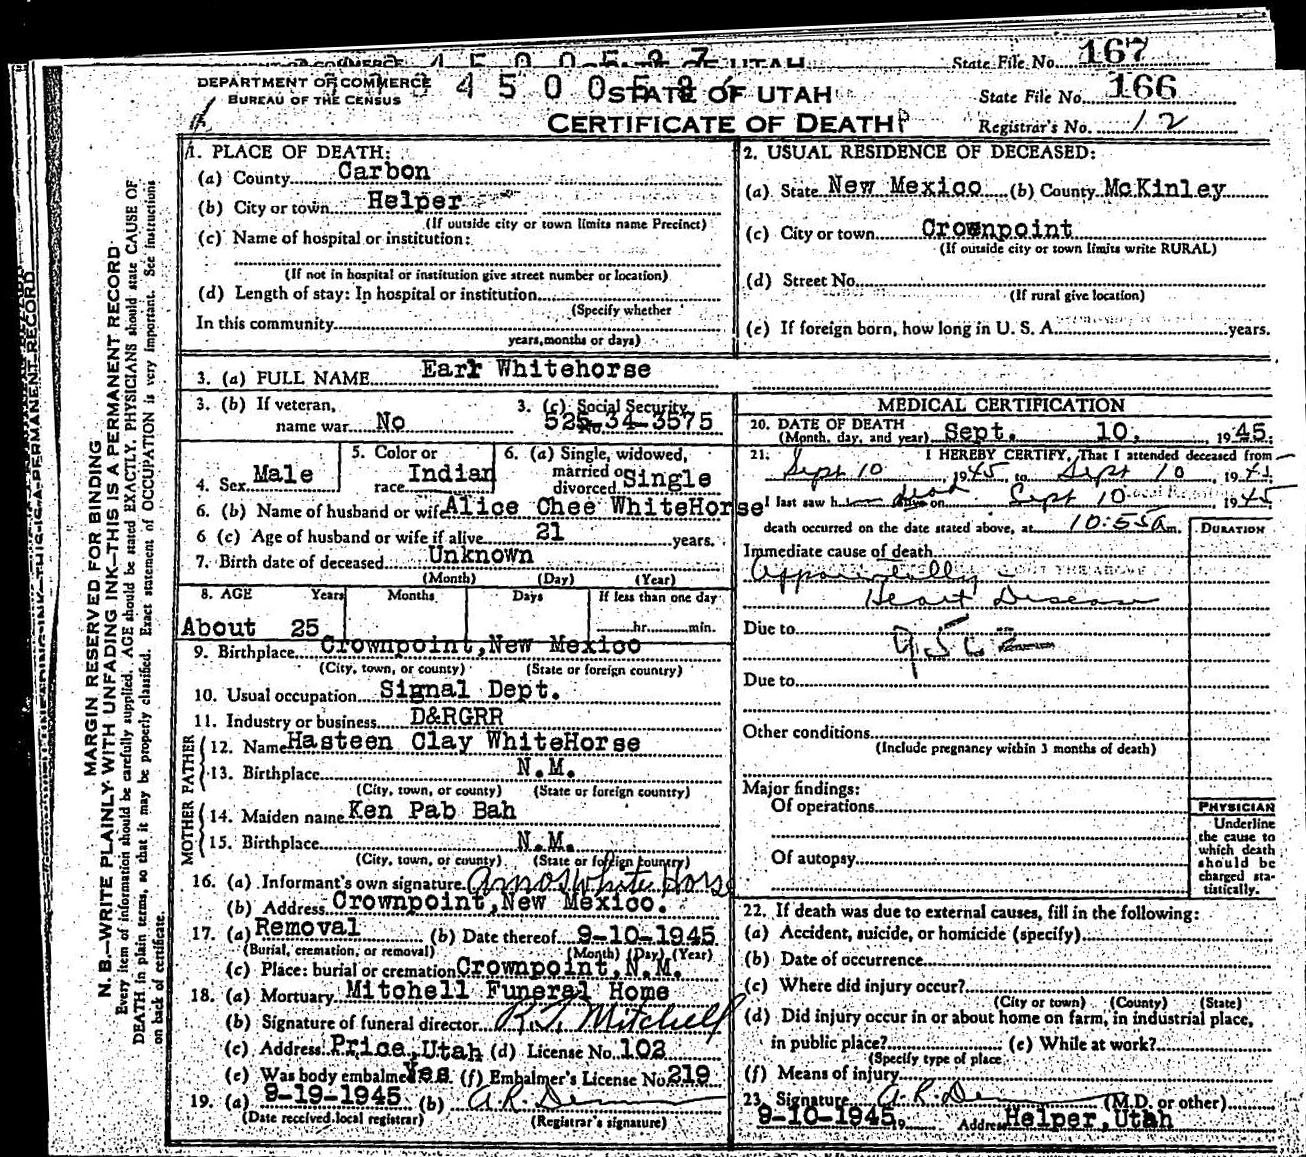 STATE OF UTAH
State File No. 167
DEPARTMENT OF COMMERCE
BUREAU OF THE CENSUS
STATE OF UTAH
CERTIFICATE OF DEATH
State File No. 166
Registrar's No. 12
MARGIN RESERVED FOR BINDING
N. B.—WRITE PLAINLY WITH UNFADING INK—THIS IS A PERMANENT RECORD
Every item of information should be carefully supplied. AGE should be stated EXACTLY. PHYSICIANS should state CAUSE OF
DEATH in plain terms, so that it may be properly classified. Exact statement of OCCUPATION is very important. See instructions
on back of certificate.
1. PLACE OF DEATH:
(a) County Carbon
(b) City or town Helper
(If outside city or town limits name Precinct)
(c) Name of hospital or institution:
(If not in hospital or institution give street number or location)
(d) Length of stay: In hospital or institution
(Specify whether
In this community
years, months or days)
2. USUAL RESIDENCE OF DECEASED:
(a) State New Mexico (b) County McKinley
(c) City or town Crownpoint
(If outside city or town limits write RURAL)
(d) Street No.
(If rural give location)
(e) If foreign born, how long in U. S. A. years.
3. (a) FULL NAME Earl Whitehorse
3. (b) If veteran, name war No
3. (c) Social Security No. 525-34-3575
4. Sex Male
5. Color or race Indian
6. (a) Single, widowed, married or divorced Single
6. (b) Name of husband or wife Alice Chee WhiteHorse
6 (c) Age of husband or wife if alive 21 years.
7. Birth date of deceased Unknown
(Month) (Day) (Year)
8. AGE Years Months Days If less than one day
About 25 hr. min.
9. Birthplace Crownpoint, New Mexico
(City, town, or county) (State or foreign country)
10. Usual occupation Signal Dept.
11. Industry or business D&RGRR
FATHER
12. Name Hasteen Clay WhiteHorse
13. Birthplace N.M.
(City, town, or county) (State or foreign country)
MOTHER
14. Maiden name Ken Pab Bah
15. Birthplace N.M.
(City, town, or county) (State or foreign country)
16. (a) Informant's own signature Amos White Horse
(b) Address Crownpoint, New Mexico.
17. (a) Removal (b) Date thereof 9-10-1945
(Burial, cremation, or removal) (Month) (Day) (Year)
(c) Place: burial or cremation Crownpoint, N.M.
18. (a) Mortuary Mitchell Funeral Home
(b) Signature of funeral director Mitchell
(c) Address Price, Utah (d) License No. 102
(e) Was body embalmed Yes (f) Embalmer's License No. 219
19. (a) 9-19-1945 (b) A.R.
(Date received local registrar) (Registrar's signature)
MEDICAL CERTIFICATION
20. DATE OF DEATH
(Month, day, and year) Sept. 10, 1945.
21. I HEREBY CERTIFY, That I attended deceased from
Sept 10 1945 to Sept 10, 19
I last saw h dead on Sept 10 1945
death occurred on the date stated above, at 10:55 a m.
DURATION
Immediate cause of death
Heart Disease
Due to
Due to
Other conditions
(Include pregnancy within 3 months of death)
Major findings:
Of operations
Of autopsy
PHYSICIAN
Underline
the cause to
which death
should be
charged sta-
tistically.
22. If death was due to external causes, fill in the following:
(a) Accident, suicide, or homicide (specify)
(b) Date of occurrence
(c) Where did injury occur?
(City or town) (County) (State)
(d) Did injury occur in or about home on farm, in industrial place,
in public place? (e) While at work?
(Specify type of place
(f) Means of injury
23. Signature A. R. (M.D. or other)
9-10-1945 Address Helper, Utah